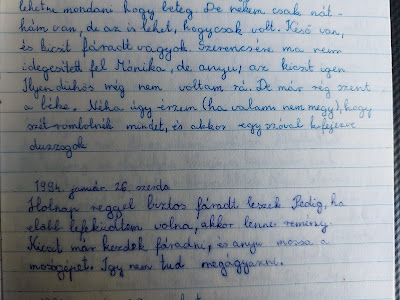 lehetne mondani hogy beteg. De nekem csak nát-
hám van, de az is lehet, hogy csak volt. Késő van,
és kicsit fáradt vagyok. Szerencsére ma nem
idegesített fel Mónika, de anyu, az kicsit igen
Ilyen dühös még nem voltam rá. De már rég szent
a béke. Néha úgy érzem (ha valami nem megy), hogy
szét rombolnék mindet, és akkor egy szóval kifejezve
duzzogok
1994. január 26. szerda
Holnap reggel biztos fáradt leszek. Pedig, ha
előbb lefeküdtem volna, akkor lenne remény.
Kicsit már kezdek fáradni, és anyu mossa a
mosógépet. Így nem tud megagyazni.